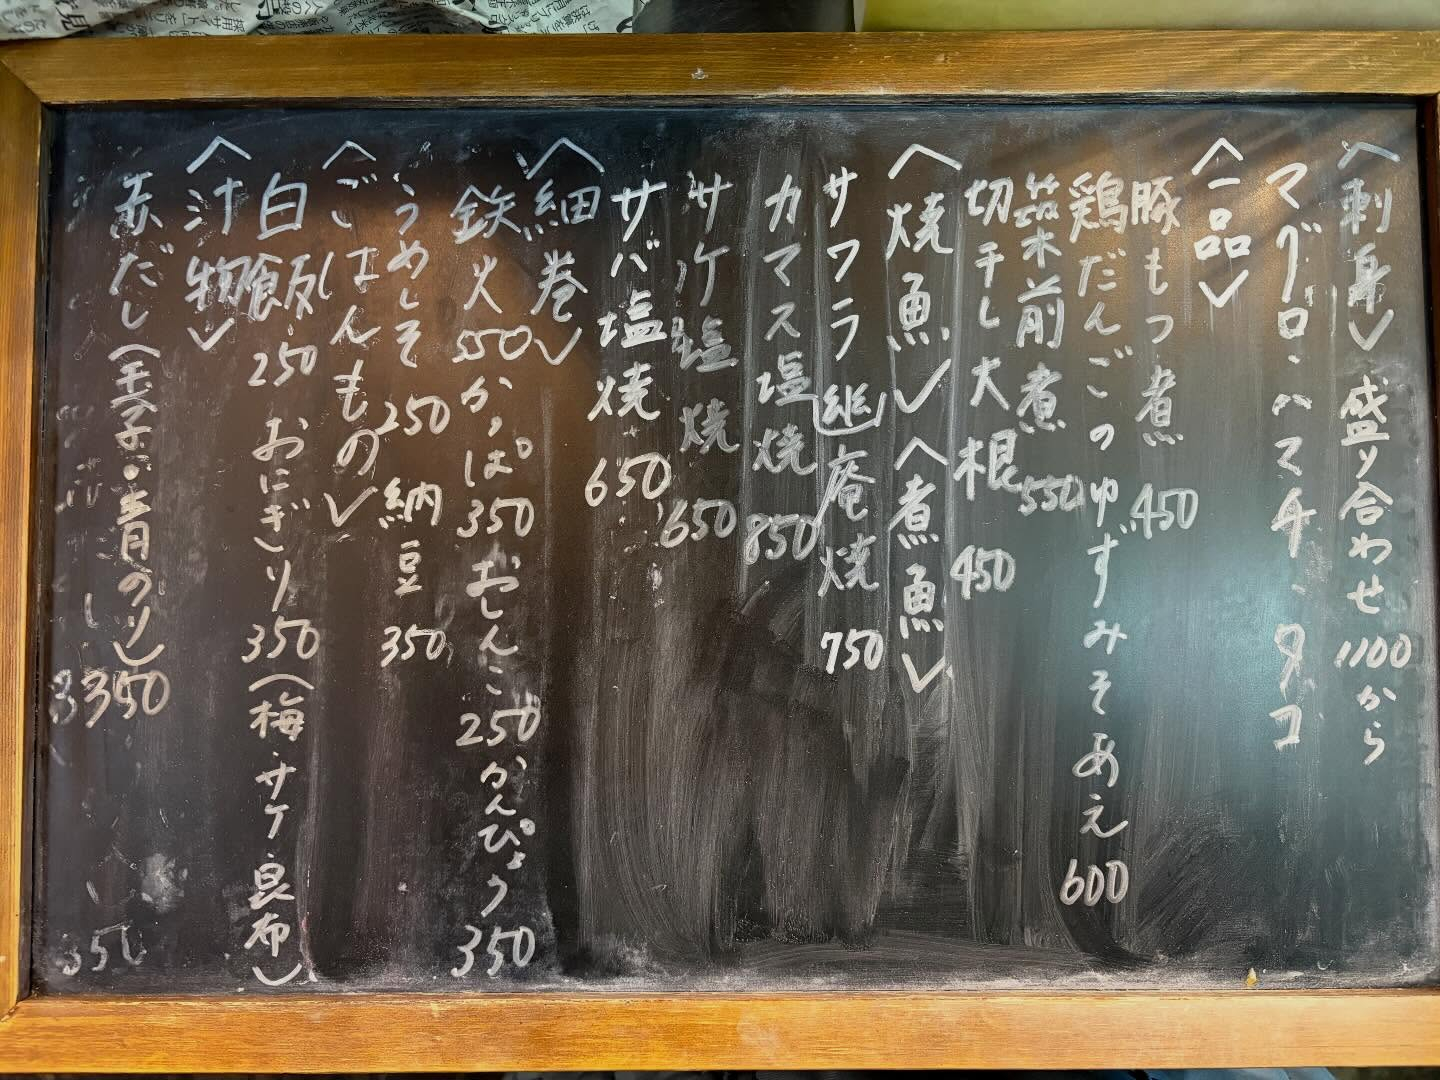 〈刺身〉盛り合わせ 1100から
マグロ、ハマチ、タコ
〈一品〉
豚もつ煮 450
鶏だんごのゆずみそあえ 600
筑前煮 550
切干し大根 450
〈焼魚〉〈煮魚〉
サワラ幽庵焼 750
カマス塩焼 850
サケ塩焼 650
サバ塩焼 650
〈細巻〉
鉄火 550 かっぱ 350 おしんこ 250 かんぴょう 350
うめしそ 250 納豆 350
〈ごはんもの〉
白飯 250 おにぎり 350(梅・サケ・昆布)
〈汁物〉
赤だし(玉子・青のり) 350